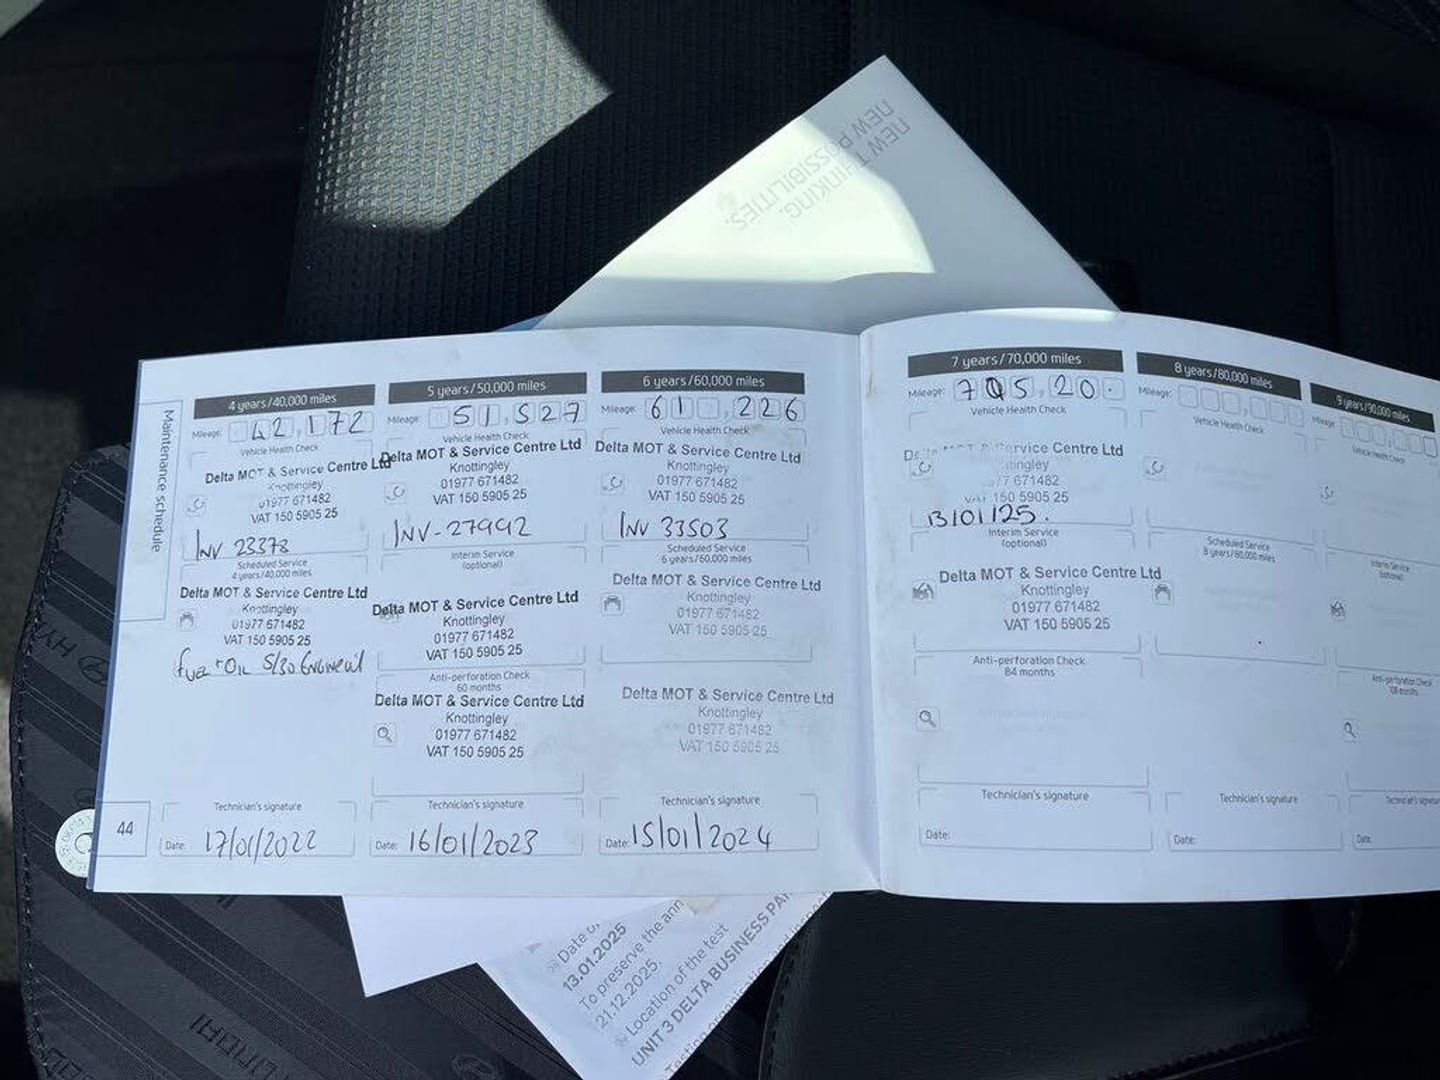 NEW THINKING.
NEW POSSIBILITIES.
Maintenance schedule
4 years/40,000 miles
Mileage: 42,172
Vehicle Health Check
Delta MOT & Service Centre Ltd
Knottingley
01977 671482
VAT 150 5905 25
INV 23378
Scheduled Service
4 years/40,000 miles
Delta MOT & Service Centre Ltd
Knottingley
01977 671482
VAT 150 5905 25
Technician's signature
Date: 17/01/2022
44
5 years/50,000 miles
Mileage: 51,527
Vehicle Health Check
Delta MOT & Service Centre Ltd
Knottingley
01977 671482
VAT 150 5905 25
INV-27992
Interim Service
(optional)
Delta MOT & Service Centre Ltd
Knottingley
01977 671482
VAT 150 5905 25
Anti-perforation Check
60 months
Delta MOT & Service Centre Ltd
Knottingley
01977 671482
VAT 150 5905 25
Technician's signature
Date: 16/01/2023
6 years/60,000 miles
Mileage: 61,226
Vehicle Health Check
Delta MOT & Service Centre Ltd
Knottingley
01977 671482
VAT 150 5905 25
INV 33503
Scheduled Service
6 years/60,000 miles
Delta MOT & Service Centre Ltd
Knottingley
01977 671482
VAT 150 5905 25
Delta MOT & Service Centre Ltd
Knottingley
01977 671482
VAT 150 5905 25
Technician's signature
Date: 15/01/2024
7 years/70,000 miles
Mileage:
Vehicle Health Check
Service Centre Ltd
671482
VAT 150 5905 25
13/01/25.
Interim Service
(optional)
Delta MOT & Service Centre Ltd
Knottingley
01977 671482
VAT 150 5905 25
Anti-perforation Check
84 months
Technician's signature
Date:
8 years/80,000 miles
Mileage:
Vehicle Health Check
Scheduled Service
8 years/80,000 miles
Technician's signature
Date:
9 years/90,000 miles
Mileage:
Vehicle Health Check
Interim Service
(optional)
Anti-perforation Check
108 months
Technician's signature
Date:
Date
13.01.2025
To preserve the ann
21.12.2025.
Location of the test
UNIT 3 DELTA BUSINESS PA
HYUNDAI